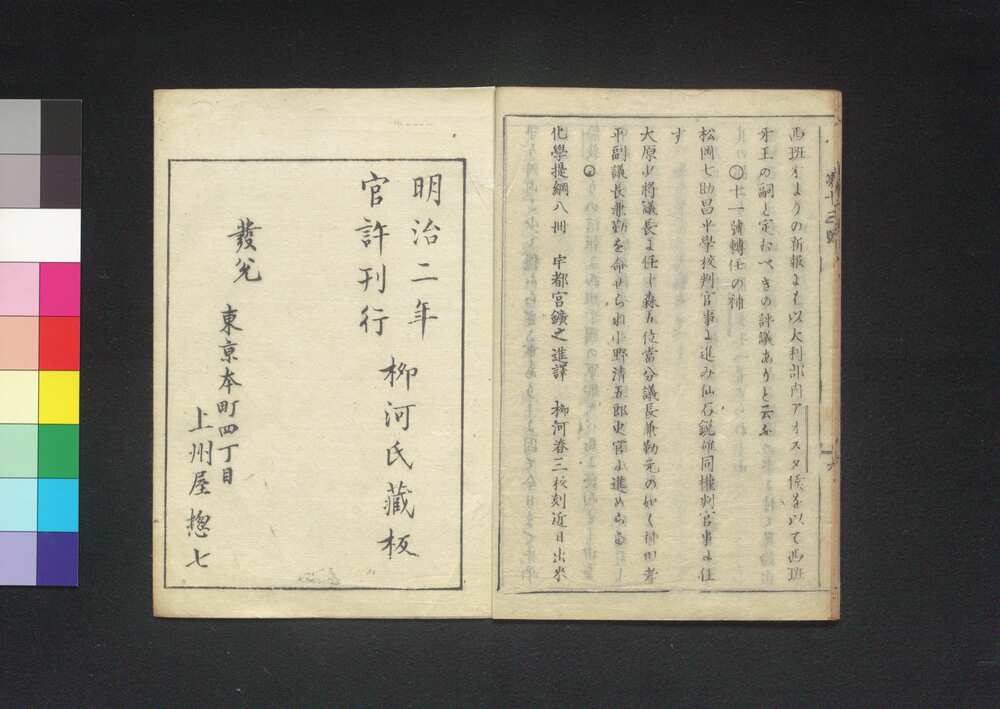 西班牙よりの新報よも以大利部内アオスタ侯を以て西班
牙王の嗣と定むべきの評議ありと云ふ
○十一號轉任の補
松岡七助昌平學校判官事よ進み仙石鋭雄同權判官事よ任
す
大原少將議長よ任し森五位當分議長兼勤元の如く神田孝
平副議長兼勤を命せられ小野清五郎史官よ進めらる
化學提綱八冊 宇都宮鑛之進譯 柳河春三校刻近日出来
第十三號
明治二年 柳河氏藏板
官許刊行
發兌 東京本町四丁目
上州屋惣七